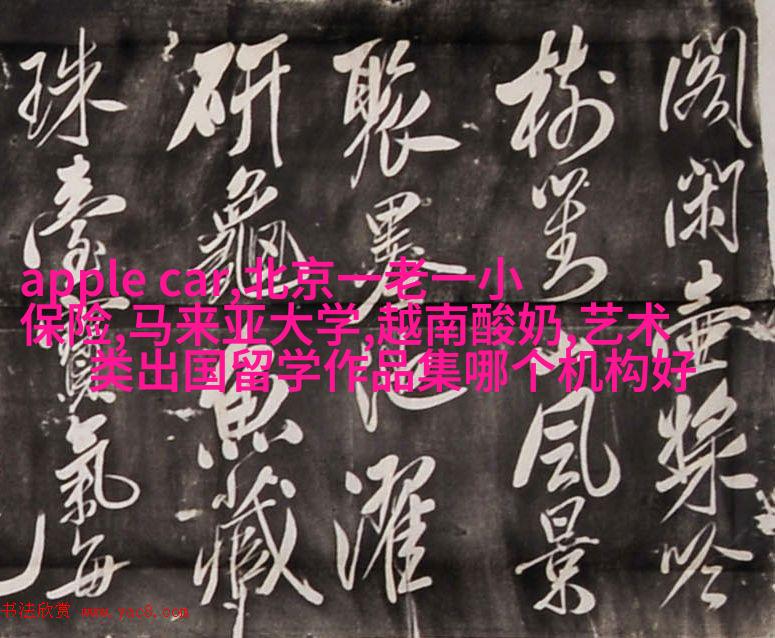 apple car,北京一老一小
保险,马来亚大学,越南酸奶,艺术
类出国留学作品集哪个机构好
阁闲壶吟
树对山风景
聚墨池濯
研龜魚藏
珠臺氣每
书法欣赏 www.yac8.com